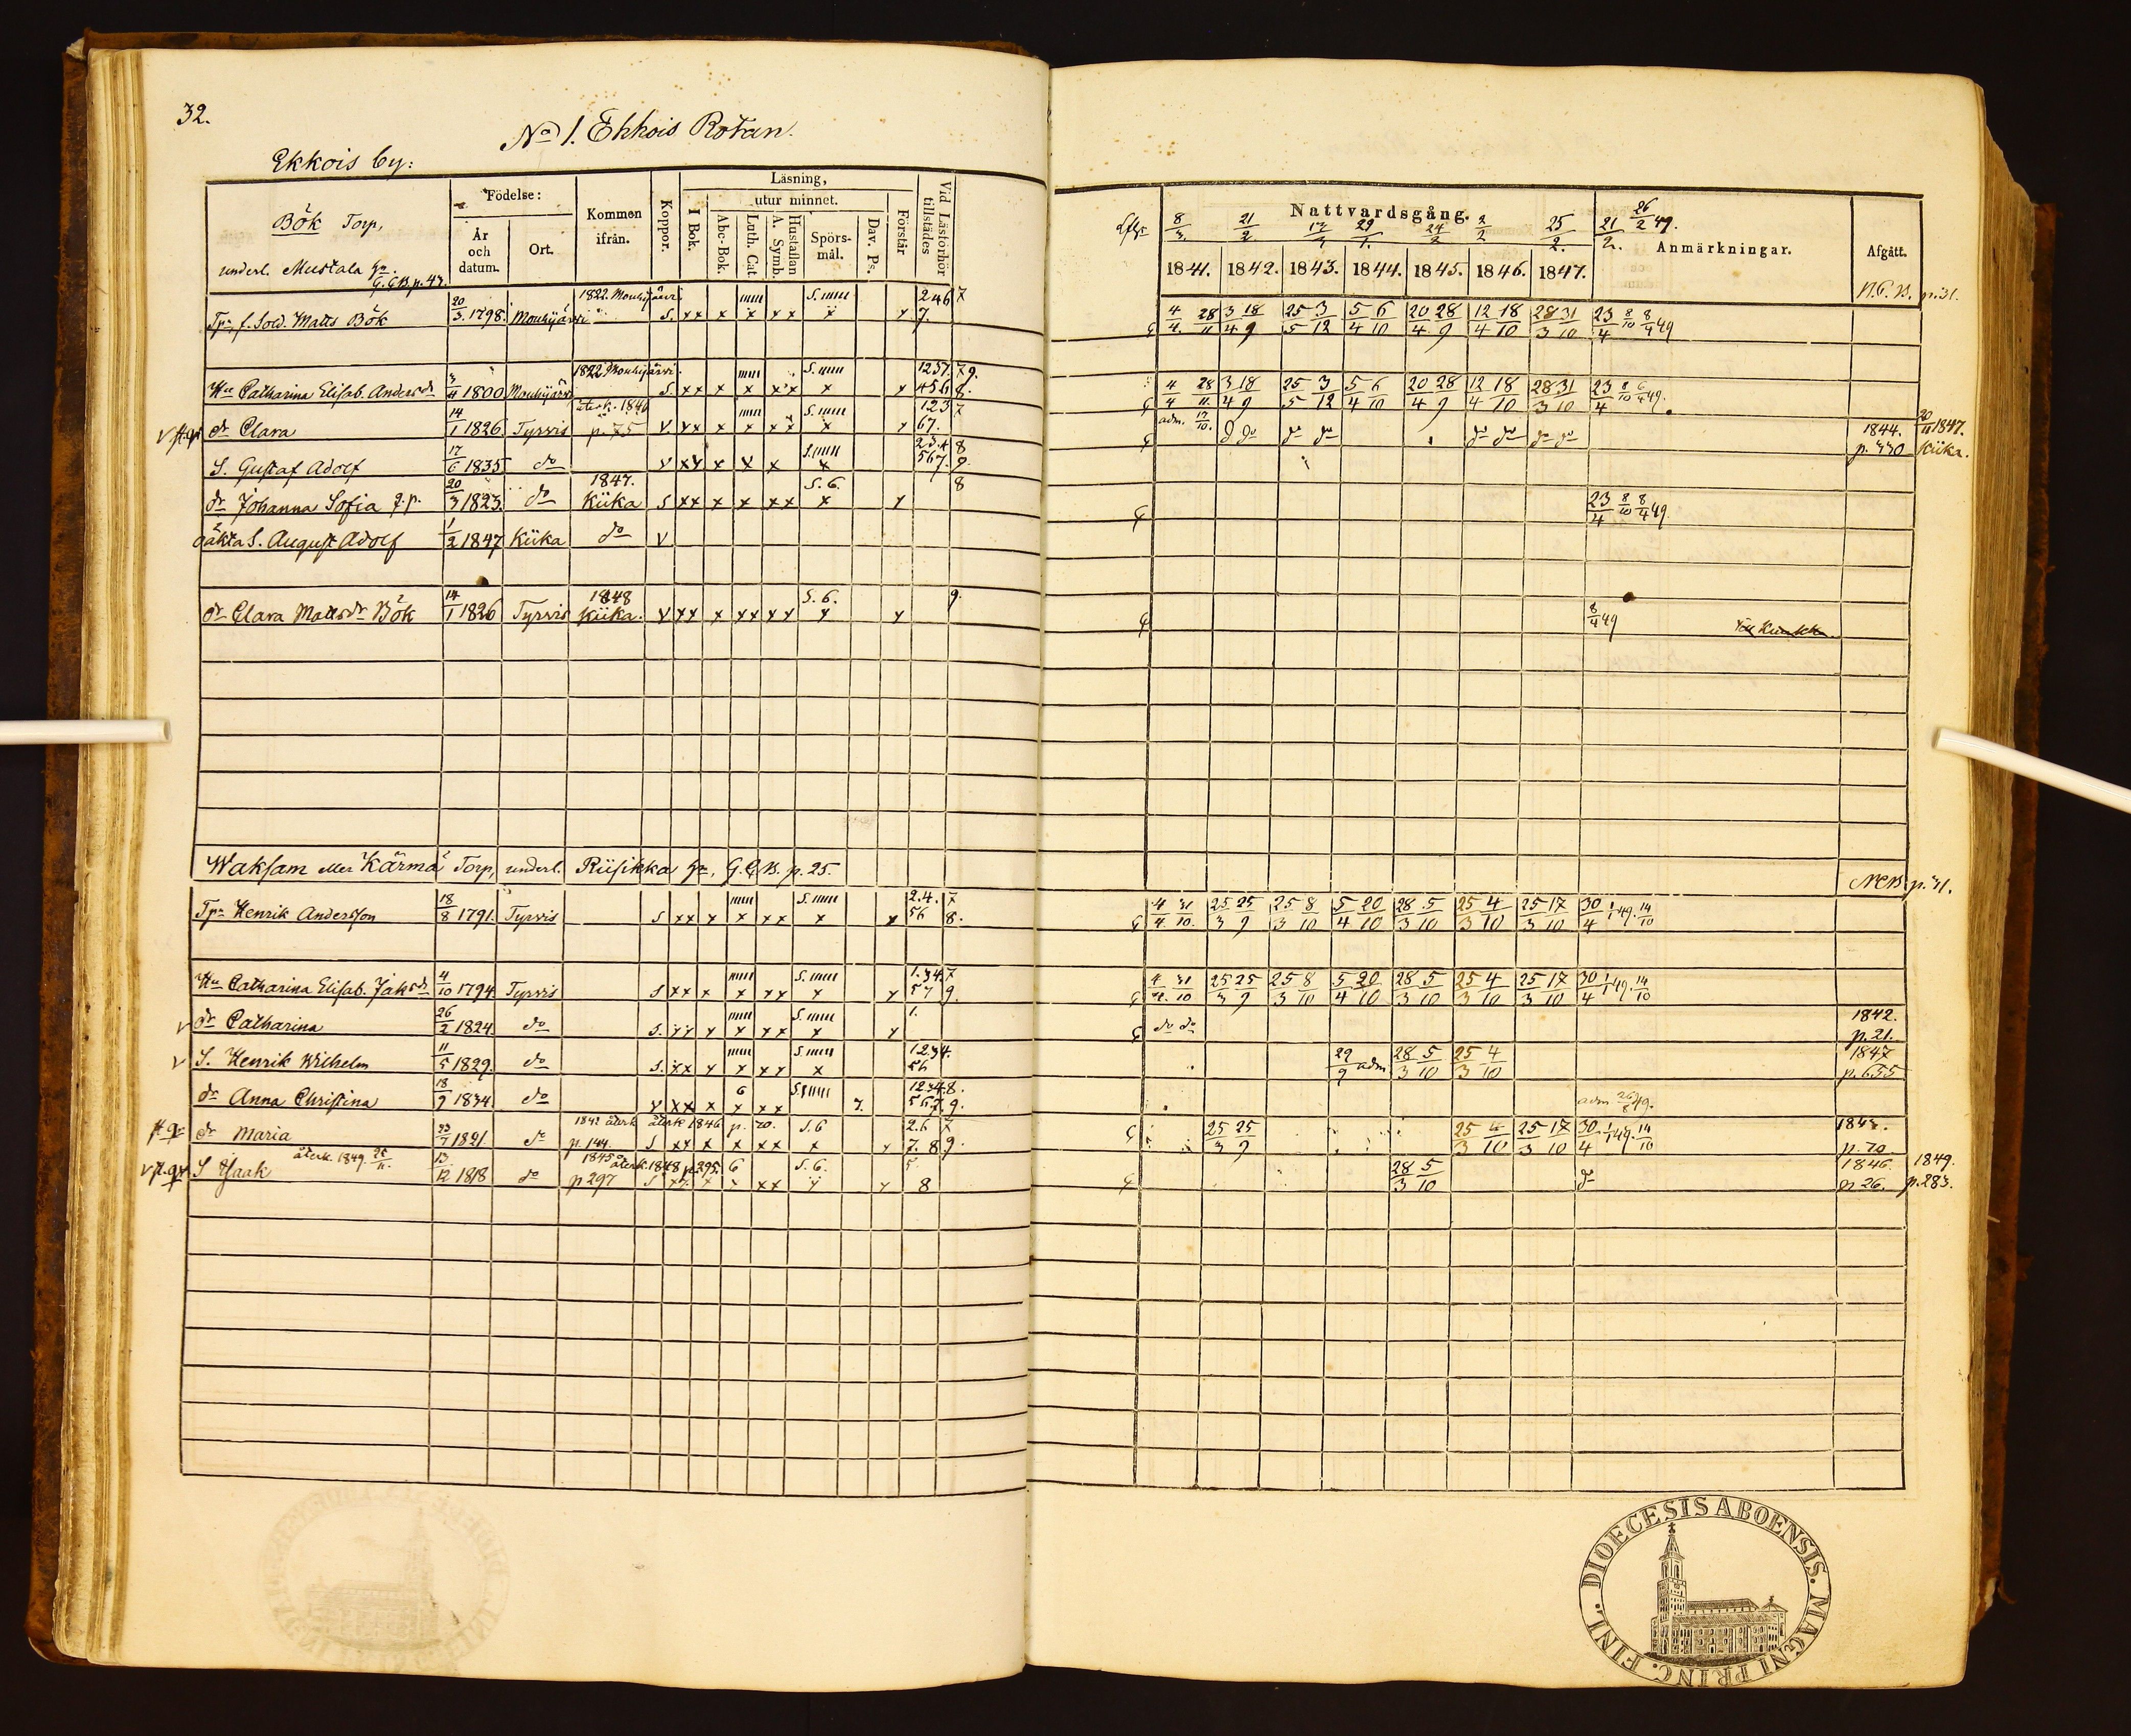 32.
No 1. Ekkois Rotan.
Ekkois by:
Bök Torp,
underl. Mustala
G.C.B. p. 43.
Födelse:
År och datum.
Ort.
Kommen ifrån.
Koppor.
Läsning,
I Bok.
utur minnet.
Abc-Bok.
Luth. Cat.
Hustaflan A. Symb.
Spörs-mål.
Dav. Ps.
Förstår
Vid Läsförhör tillstädes
Nattvardsgång.
8/3. 21/2 29/1. 2/2 25/2. 21/2. 26/2 49.
1841. 1842. 1843. 1844. 1845. 1846. 1847.
Anmärkningar.
Afgått.
N.C.B. p. 31.
Tpr, f. Sold. Matts Bök 20/3. 1798. Mouhijärvi 1822. Mouhijärvi S. x x x x x x S. x x 246 7 7.
4/4. 28/11 3/4 18/9 25/5 3/12 5/4 6/10 20/4 28/9 12/4 18/10 28/3 31/10 23/4 8/10 8/4 49
Hu Catharina Elisab. Andersdr 3/11 1800 Mouhijärvi 1822. Mouhijärvi. S x x x x x x S. x x 1237. 79. 456 8.
4/4 28/11. 3/4 18/9 25/5 3/12 5/4 6/10 20/4 28/9 12/4 18/10 28/3 31/10 23/4 8/10 6/4 49.
dr Clara 14/1 1826. Tyrvis återk. 1846 p. 75 V. x x x x x x S. x x 123 7 67.
adm. 17/10. do do do do do do do do 1844. p. 330 20/11 1847. Kiika.
S. Gustaf Adolf 17/6 1835 do V x x x x x S. x 234 8 567. 9.
dr Johanna Sofia q.p. 20/3 1823. do 1847. Kiika S x x x x x x S. 6. x x 8
23/4 8/10 8/4 49.
oäkta S. August Adolf 1/2 1847 Kiika do V
dr Clara Mattsdr Bök 14/1 1826 Tyrvis 1848 Kiika. V x x x x x x x S. 6. x x 9.
8/4 49
Waksam eller Kärmä Torp, underl. Riisikka G.C.B. p. 25.
NCB p. 31.
Tpr Henrik Andersson 18/8 1791. Tyrvis S x x x x x x S. x x 2.4. 7 56 8.
4/4. 31/10. 25/3 25/9 25/3 8/10 5/4 20/10 28/3 5/10 25/3 4/10 25/3 17/10 30/4 1/1 49. 14/10
Hu Catharina Elisab. Jaksdr 4/10 1794 Tyrvis S x x x x x x S. x x 1.34 7 57 9.
4/4. 31/10 25/3 25/9 25/3 8/10 5/4 20/10 28/3 5/10 25/3 4/10 25/3 17/10 30/4 1/1 49. 14/10
dr Catharina 26/2 1824. do S. x x x x x x S. x x 1.
do do 1842. p. 21.
S. Henrik Wilhelm 11/5 1829. do S. x x x x x x S. x 1234. 56
29/9 adm 28/3 5/10 25/3 4/10 1847 p. 655
dr Anna Christina 18/9 1834 do V x x x 6 x x x S. 7. 12348. 567 9.
adm 26/8 49.
dr Maria 23/7 1821 do 1842 återk p. 144. återk 1846 p. 70. S x x x x x x S. 6 x x 2.6 7 7. 8 9.
25/3 25/9 25/3 4/10 25/3 17/10 30/4 1/1 49. 14/10 1843. p. 70
S Isaak återk. 1849. 13/12 1818 do 1845 p 297 återk. 1848 p. 295. S x x x 6 x x x S. 6. x x 5 8
28/3 5/10 do 1846. p 26. 1849. p. 283.
DIOECESIS ABOENSIS. MAGNI PRINC. FINL.